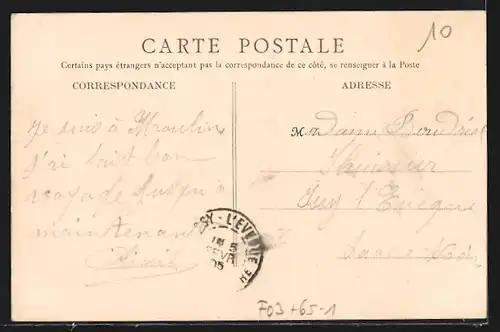 10
CARTE POSTALE
Certains pays étrangers n'acceptant pas la correspondance de ce côté, se renseigner à la Poste
CORRESPONDANCE
ADRESSE
Je suis à Moulin
j'ai fait bon
voyage jusqu'à
maintenant
M
Juzy l'Eveque
SY - L'EVEQUE
5
FEVR
05
F03+65-1